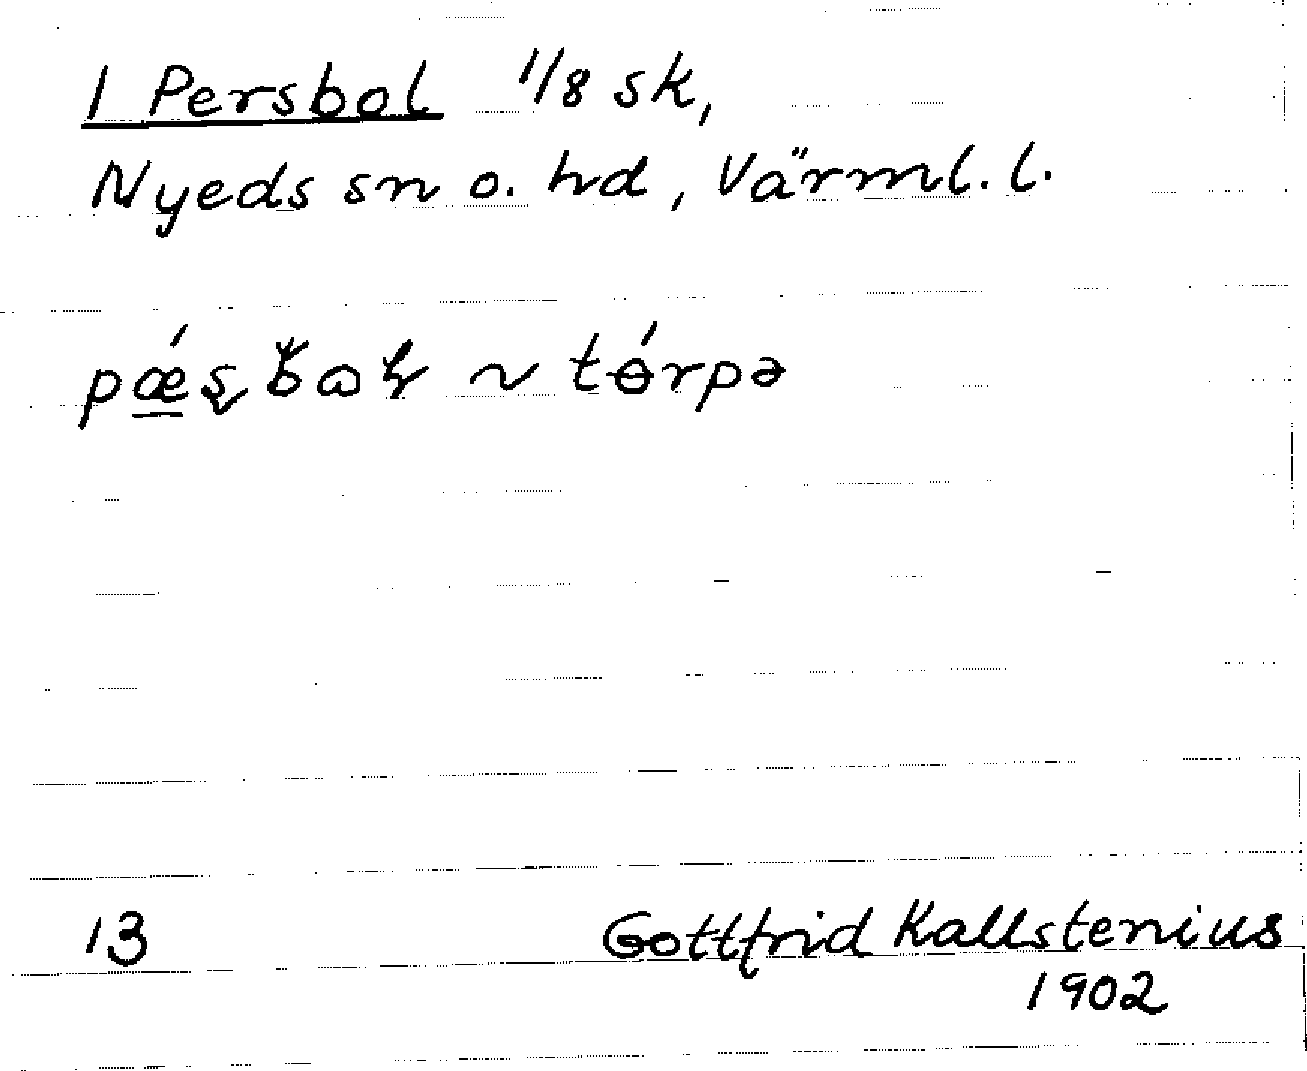 1 Persbol 1/8 sk,
Nyeds sn o. hd, Värml. l.
~ tɵ́rpə
13 Gottfrid Kallstenius
1902